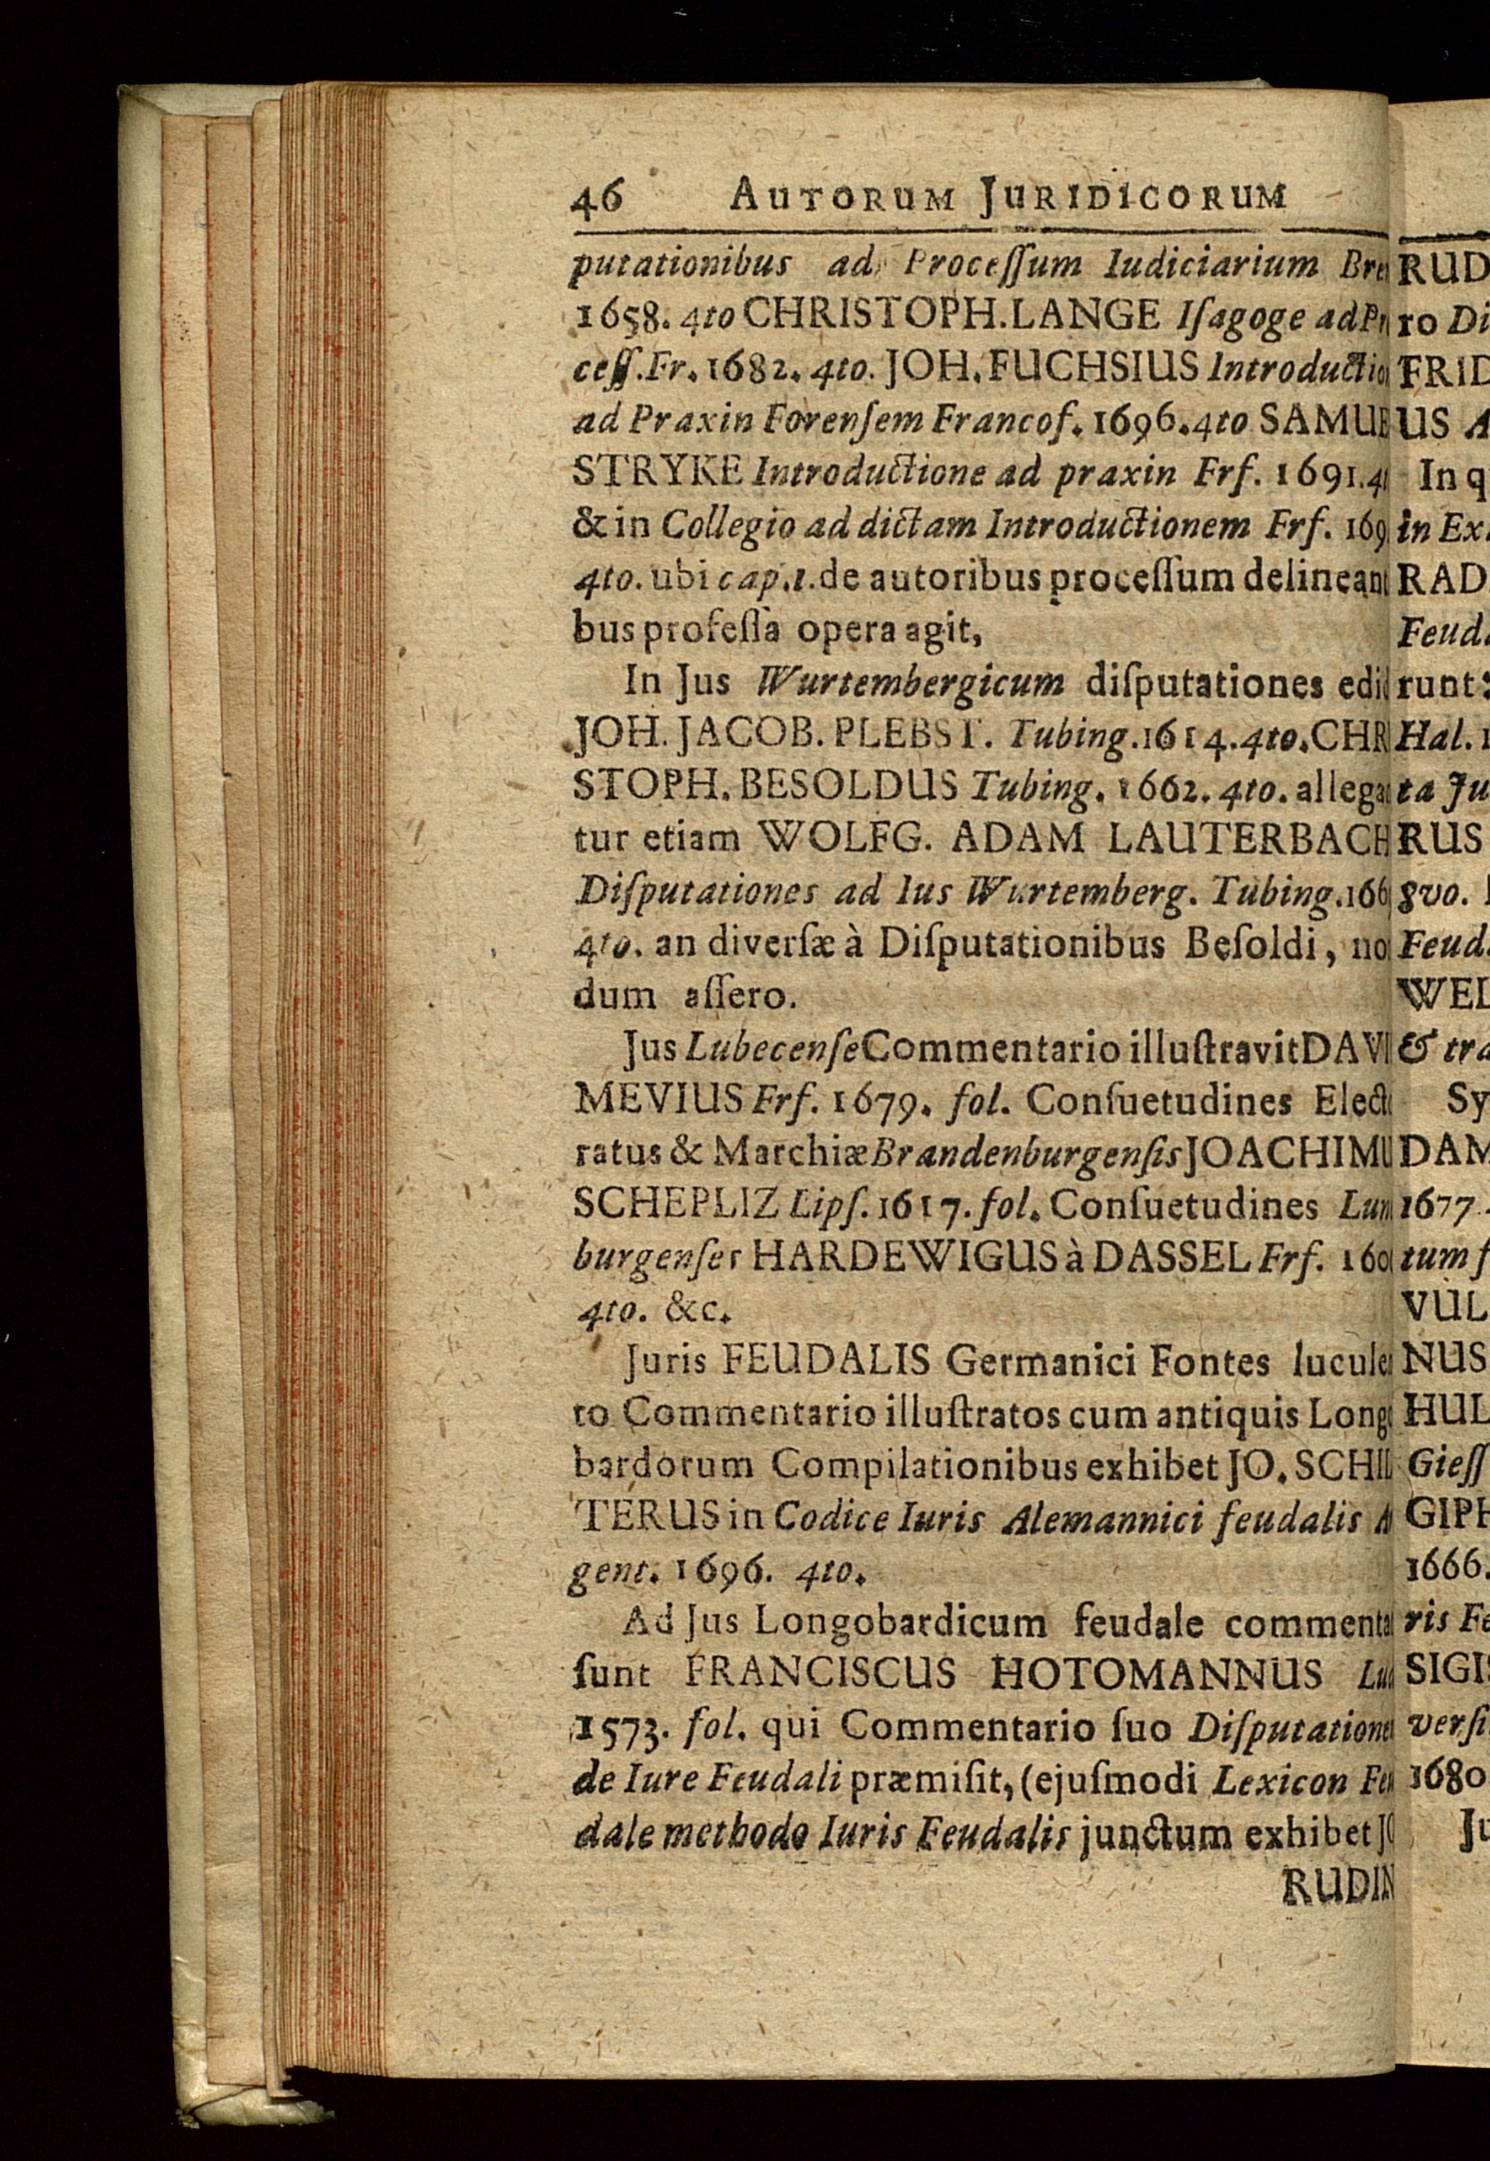 46 AUTORUM JURIDICORUM
putationibus ad Proceſſum Iudiciarium
1658. 4to CHRISTOPH. LANGE Iſagoge ad
ceſſ. Fr. 1682. 4to. JOH. FUCHSIUS Introductio
ad Praxin Forenſem Francof. 1696. 4to SAMUE
STRYKE Introductione ad praxin Frf. 1691.
& in Collegio ad dictam Introductionem Frf. 169
4to. ubi cap. 1. de autoribus proceſſum delineant
bus profeſſa opera agit,
In Jus Wurtembergicum diſputationes edi
JOH. JACOB. PLEBST. Tubing. 1614. 4to. CHR
STOPH. BESOLDUS Tubing. 1662. 4to. allega
tur etiam WOLFG. ADAM LAUTERBACH
Diſputationes ad Ius Wurtemberg. Tubing. 166
4to. an diverſæ à Diſputationibus Beſoldi, no
dum aſſero.
Jus Lubecenſe Commentario illuſtravit DAVI
MEVIUS Frf. 1679. fol. Conſuetudines Elect
ratus & Marchiæ Brandenburgenſis JOACHIMU
SCHEPLIZ Lipſ. 1617. fol. Conſuetudines Lun
burgenſes HARDEWIGUS à DASSEL Frf. 160
4to. &c.
Juris FEUDALIS Germanici Fontes lucule
to Commentario illuſtratos cum antiquis Longo
bardorum Compilationibus exhibet JO. SCHIL
TERUS in Codice Iuris Alemannici feudalis A
gent. 1696. 4to.
Ad Jus Longobardicum feudale commenta
ſunt FRANCISCUS HOTOMANNUS
1573. fol. qui Commentario ſuo Diſputatione
de Iure Feudali præmiſit, (ejuſmodi Lexicon Feu
dale methodo Iuris Feudalis junctum exhibet JO
RUDIN
RUD
ro Di
FRID
US A
In q
in Ex
RAD
Feud
runt:
Hal. 1
ta Ju
RUS
8vo.
Feud
WEL
& tra
Sy
DAM
1677.
tum ſ
VUL
NUS
HUL
Gieſſ
GIPH
1666.
ris Fe
SIGIS
verſi
1680
Ju